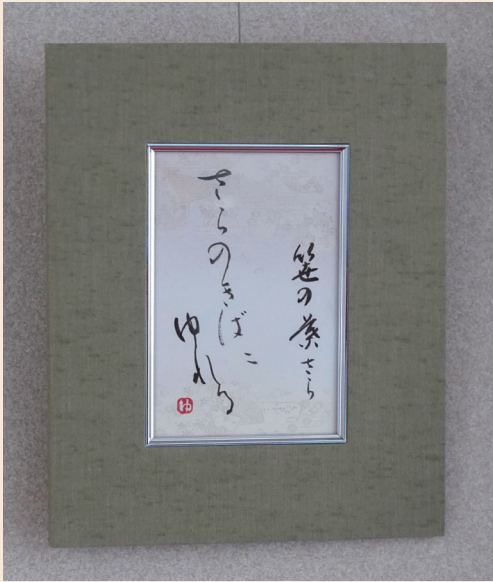 笹の葉さら
さらのきばに
ゆれる
ゆ